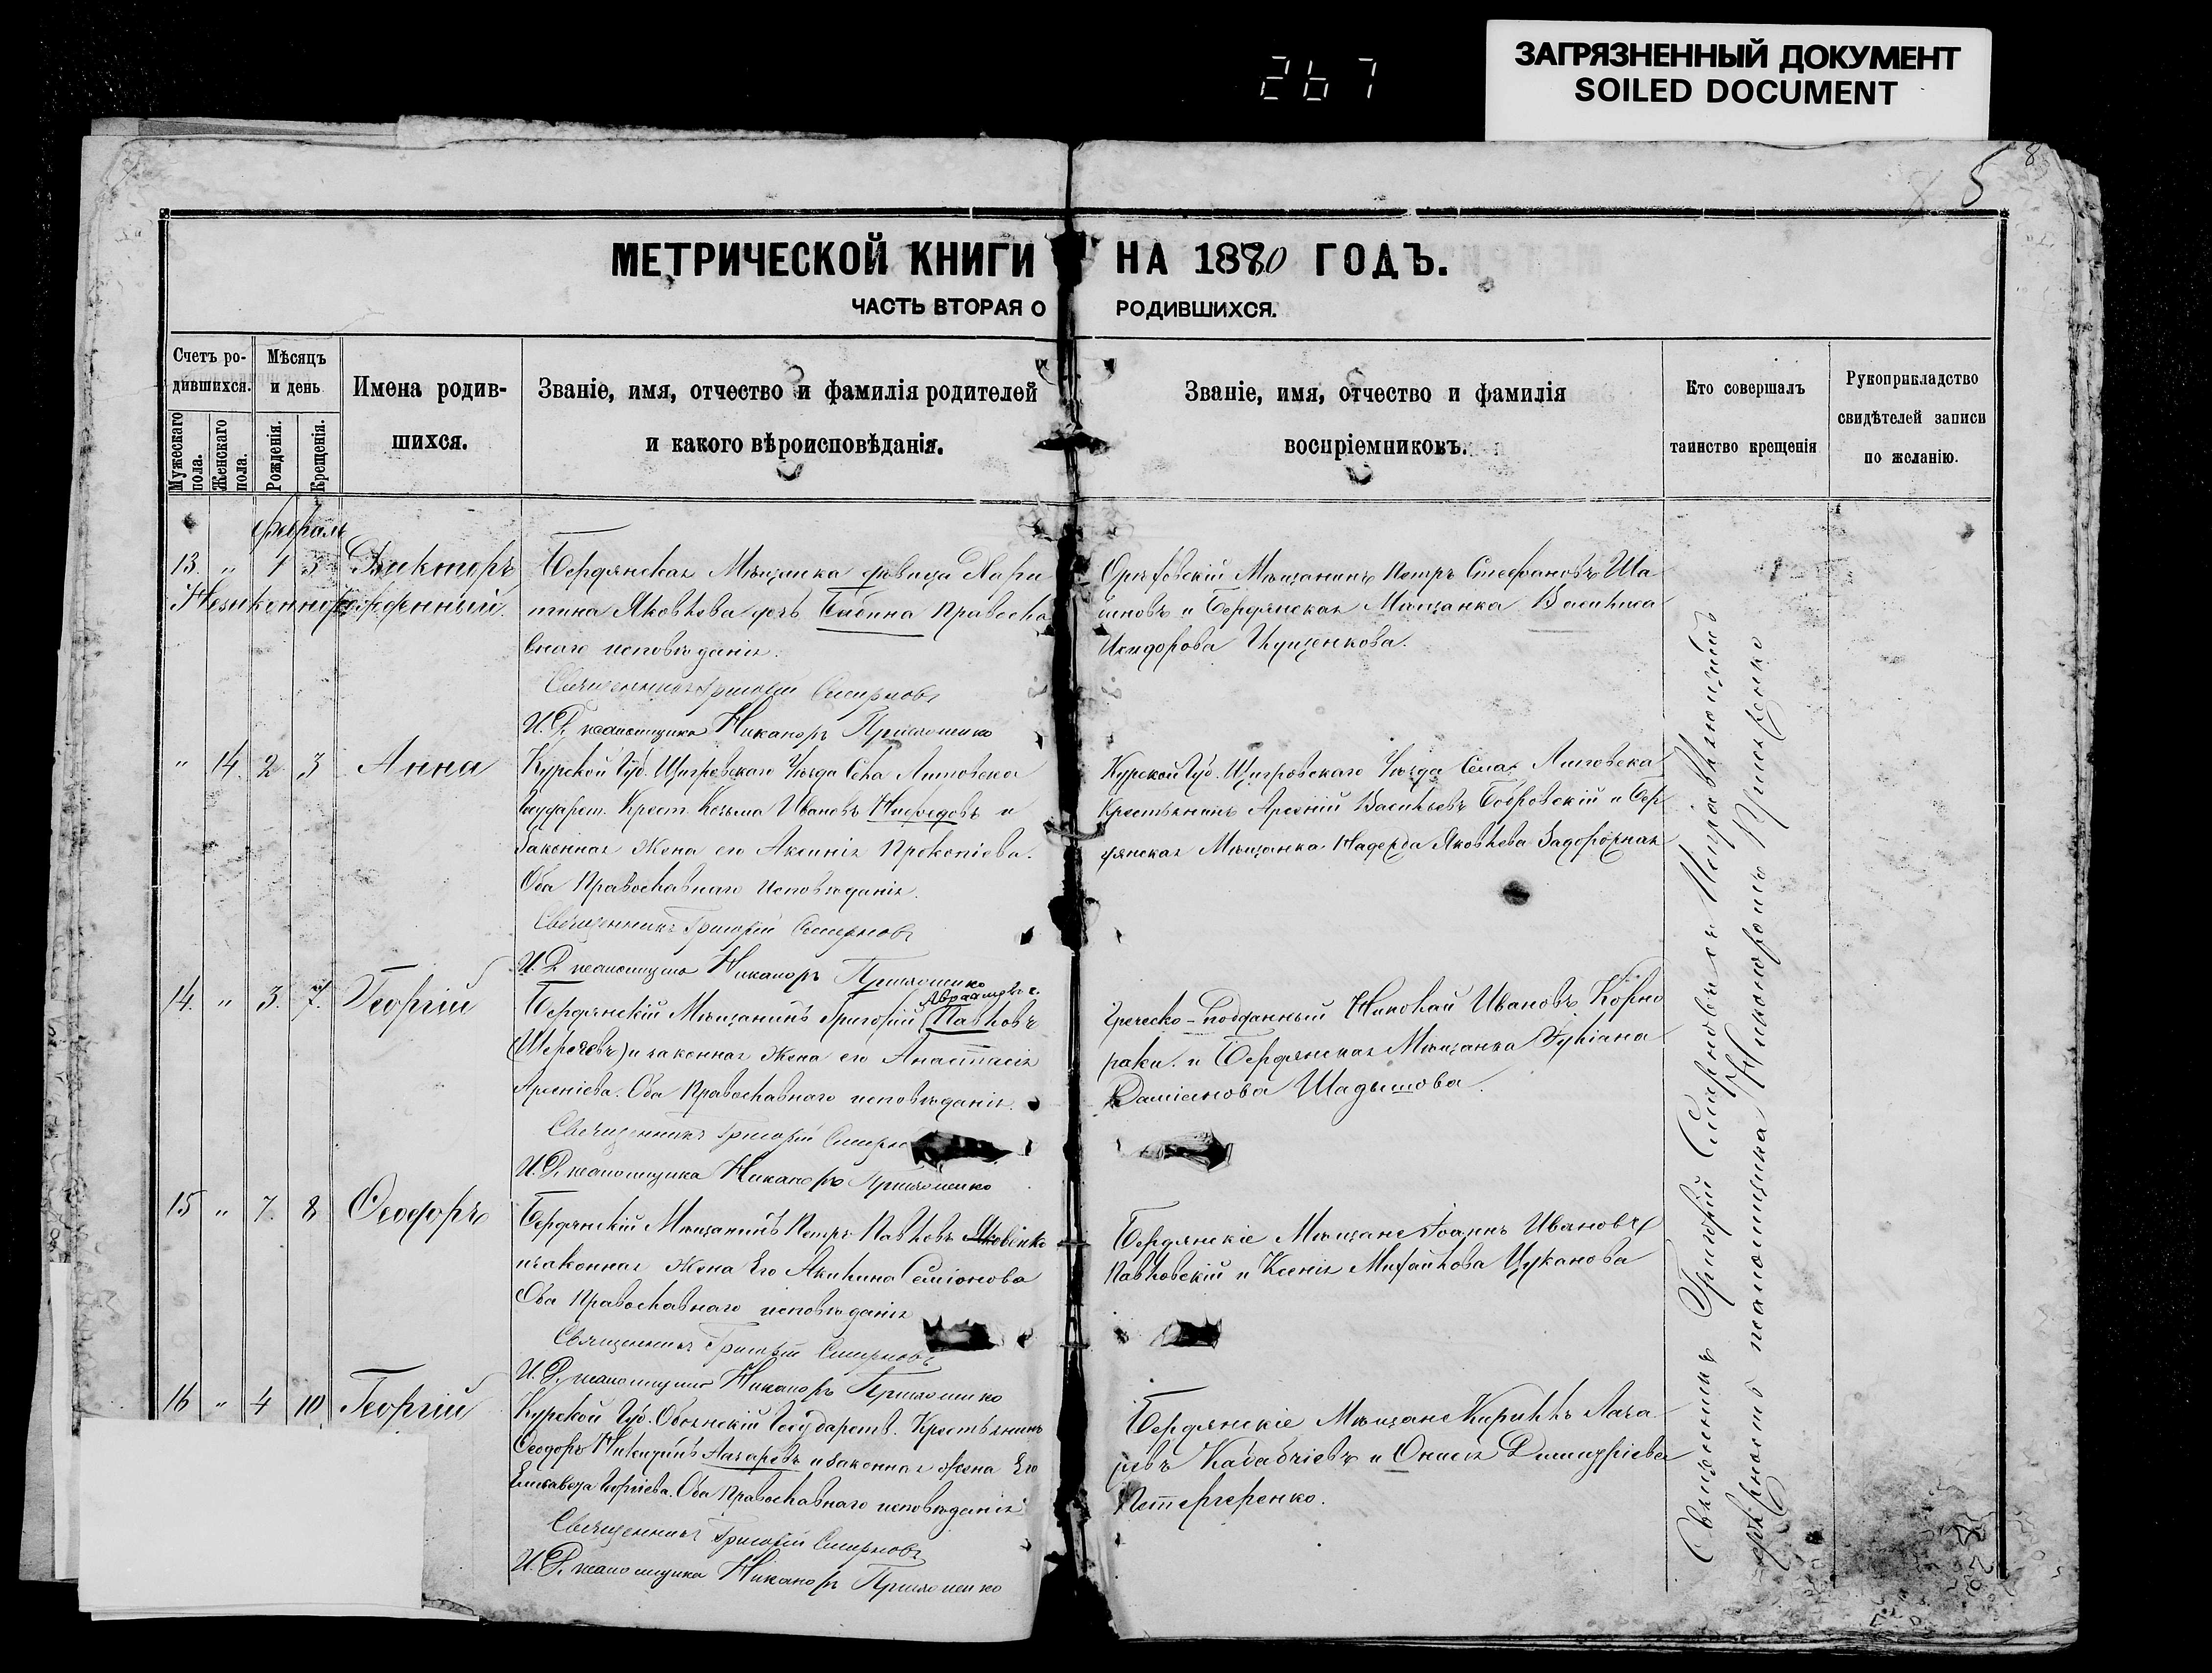 ЗАГРЯЗНЕННЫЙ ДОКУМЕНТ
SOILED DOCUMENT
267
8 5
МЕТРИЧЕСКОЙ КНИГИ НА 1880 ГОДЪ.
ЧАСТЬ ВТОРАЯ О РОДИВШИХСЯ.
Счетъ ро-
дившихся.
Мужескаго пола.
Женскаго пола.
Мѣсяцъ
и день
Рожденія.
Крещенія.
Имена родив-
шихся.
Званіе, имя, отчество и фамилія родителей
и какого вѣроисповѣданія.
Званіе, имя, отчество и фамилія
воспріемниковъ.
Кто совершалъ
таинство крещенія
Рукоприкладство
свидѣтелей записи
по желанію.
февраль
13. " 1 3 Викторъ
Незаконнорожденный.
Бердянская Мѣщанка девица
Яковлева дочь Бабина Правосла
внаго исповѣданія.
Священникъ Григорій Смирновъ
И. Д. псаломщика Никаноръ
Орѣховскій Мѣщанинъ Петръ Стефановъ Ша
и Бердянская Мѣщанка Василиса
Исидорова Куценкова.
" 14. 2 3 Анна
Курской Губ. Щигровскаго Уѣзда Села Липовска
Государст. Крест. Козьма Ивановъ и
законная Жена его Аксинія Прокопіева.
Оба Православнаго Исповѣданія.
Священникъ Григорій Смирновъ
И. Д. псаломщика Никаноръ
Курской Губ. Щигровскаго Уѣзда Села Липовска
Крестьянинъ Арсеній Васильевъ Бобровскій и Бер
дянская Мѣщанка Надежда Яковлева Задорожная
14. " 3. 7. Георгій
Аврааміевъ
Бердянскій Мѣщанинъ Григорій Павловъ
и законная Жена его Анастасія
Арсеніева. Оба Православнаго исповѣданія.
Священникъ Григорій Смирно
И. Д. псаломщика Никаноръ
Греческо-подданный Николай Ивановъ Корно
раки и Бердянская Мѣщанка Іуліана
Даміанова Шадышова.
15 " 7. 8 Ѳеодоръ
Бердянскій Мѣщанинъ Петръ Павловъ Яковенко
и законная Жена Его Акилина Семіонова
Оба Православнаго исповѣданія
Священникъ Григорій Смирновъ
И. Д. псаломщика Никаноръ
Бердянскіе Мѣщане Іоаннъ Ивановъ
Павловскій и Ксенія Михайлова Цуканова
16 " 4 10 Георгій
Курской Губ. Обоянскій Государств. Крестьянинъ
Ѳеодоръ Никитинъ Азаровъ и законная Жена Его
Елисавета Георгіева. Оба Православнаго исповѣданія
Священникъ Григорій Смирновъ
И. Д. псаломщика Никаноръ
Бердянскіе Мѣщане Кириллъ Лаза
ревъ и Онисія Димитріева
Священникъ Григорій Смирновъ съ Исправляющимъ
должность псаломщика Никаноромъ